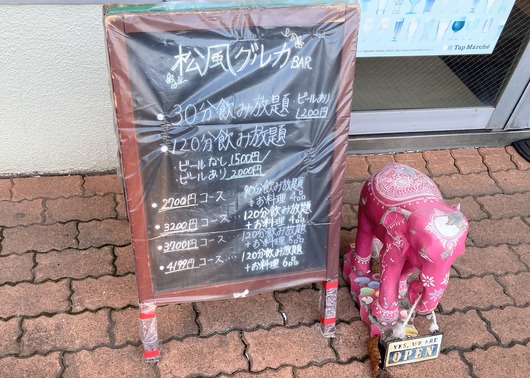 松風グルカBAR
・30分飲み放題 ビールあり
1200円
・120分飲み放題
・ビールなし 1500円/
・ビールあり 2000円/
・2700円コース… 90分飲み放題
+お料理4品
・3200円コース… 120分飲み放題
+お料理4品
・3700円コース… 120分飲み放題
+お料理5品
・4199円コース… 120分飲み放題
+お料理6品
Tap Marché
YES, WE ARE
OPEN